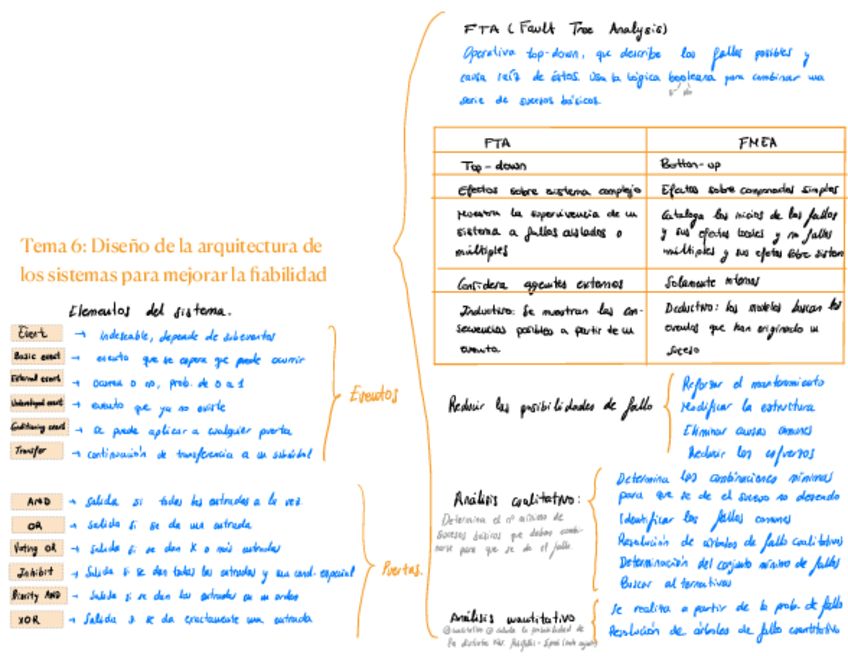 Tema 6: Diseño de la arquitectura de
los sistemas para mejorar la fiabilidad
Elementos del sistema.
Event → Indeseable, depende de subeventos
Basic event → evento que se espera que puede ocurrir
External event → ocurra o no, prob. de 0 a 1
Undeveloped event → evento que ya no existe
Conditioning event → se puede aplicar a cualquier puerta
Transfer → continuación de transferencia a un subárbol
Eventos
AND → Salida si todas las entradas a la vez.
OR → Salida si se da una entrada
Voting OR → Salida si se dan K o más entradas
Inhibit → Salida si se dan todas las entradas y una cond. especial
Priority AND → Salida si se dan las entradas en un orden
XOR → Salida si se da exactamente una entrada
Puertas.
FTA (Fault Tree Analysis)
Operativa top-down, que describe los fallos posibles y
causa raíz de éstos. Usa la lógica booleana para combinar una
serie de sucesos básicos.
FTA
FMEA
Top-down
Botton-up
Efectos sobre sistema complejo
Efectos sobre componentes simples
Muestra la supervivencia de un
sistema a fallos aislados o
múltiples
Cataloga los inicios de los fallos
y sus efectos locales y no fallos
múltiples y sus efetos sobre sistema
Considera agentes externos
Solamente internos
Inductivo: Se muestran las con-
secuencias posibles a partir de un
evento
Deductivo: los modelos buscan los
eventos que han originado un
suceso
Reducir las posibilidades de fallo
Reforzar el mantenimiento
Modificar la estructura
Eliminar causas comunes
Reducir los esfuerzos
Análisis cualitativo:
Determina el nº mínimo de
sucesos básicos que deben combi-
narse para que se de el fallo
Determina las combinaciones mínimas
para que se de el suceso no deseado
Identificar los fallos comunes
Resolución de árboles de fallo cualitativos
Determinación del conjunto mínimo de fallos
Buscar alternativas
Análisis cuantitativo
Se realiza a partir de la prob. de fallo
Resolución de árboles de fallo cuantitativo